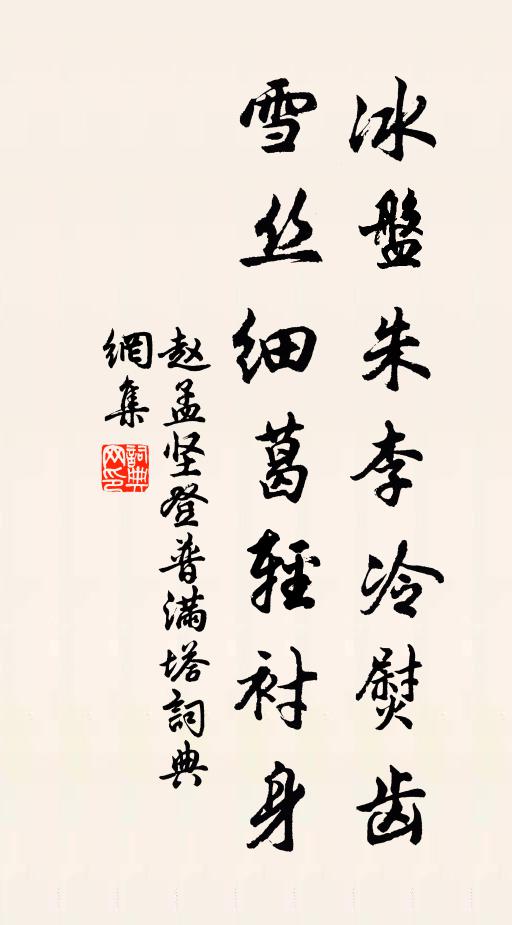 冰盤朱李冷熨齿
雪丝细葛輕衬身
赵孟坚登普满塔詞典
網集
詞典网印